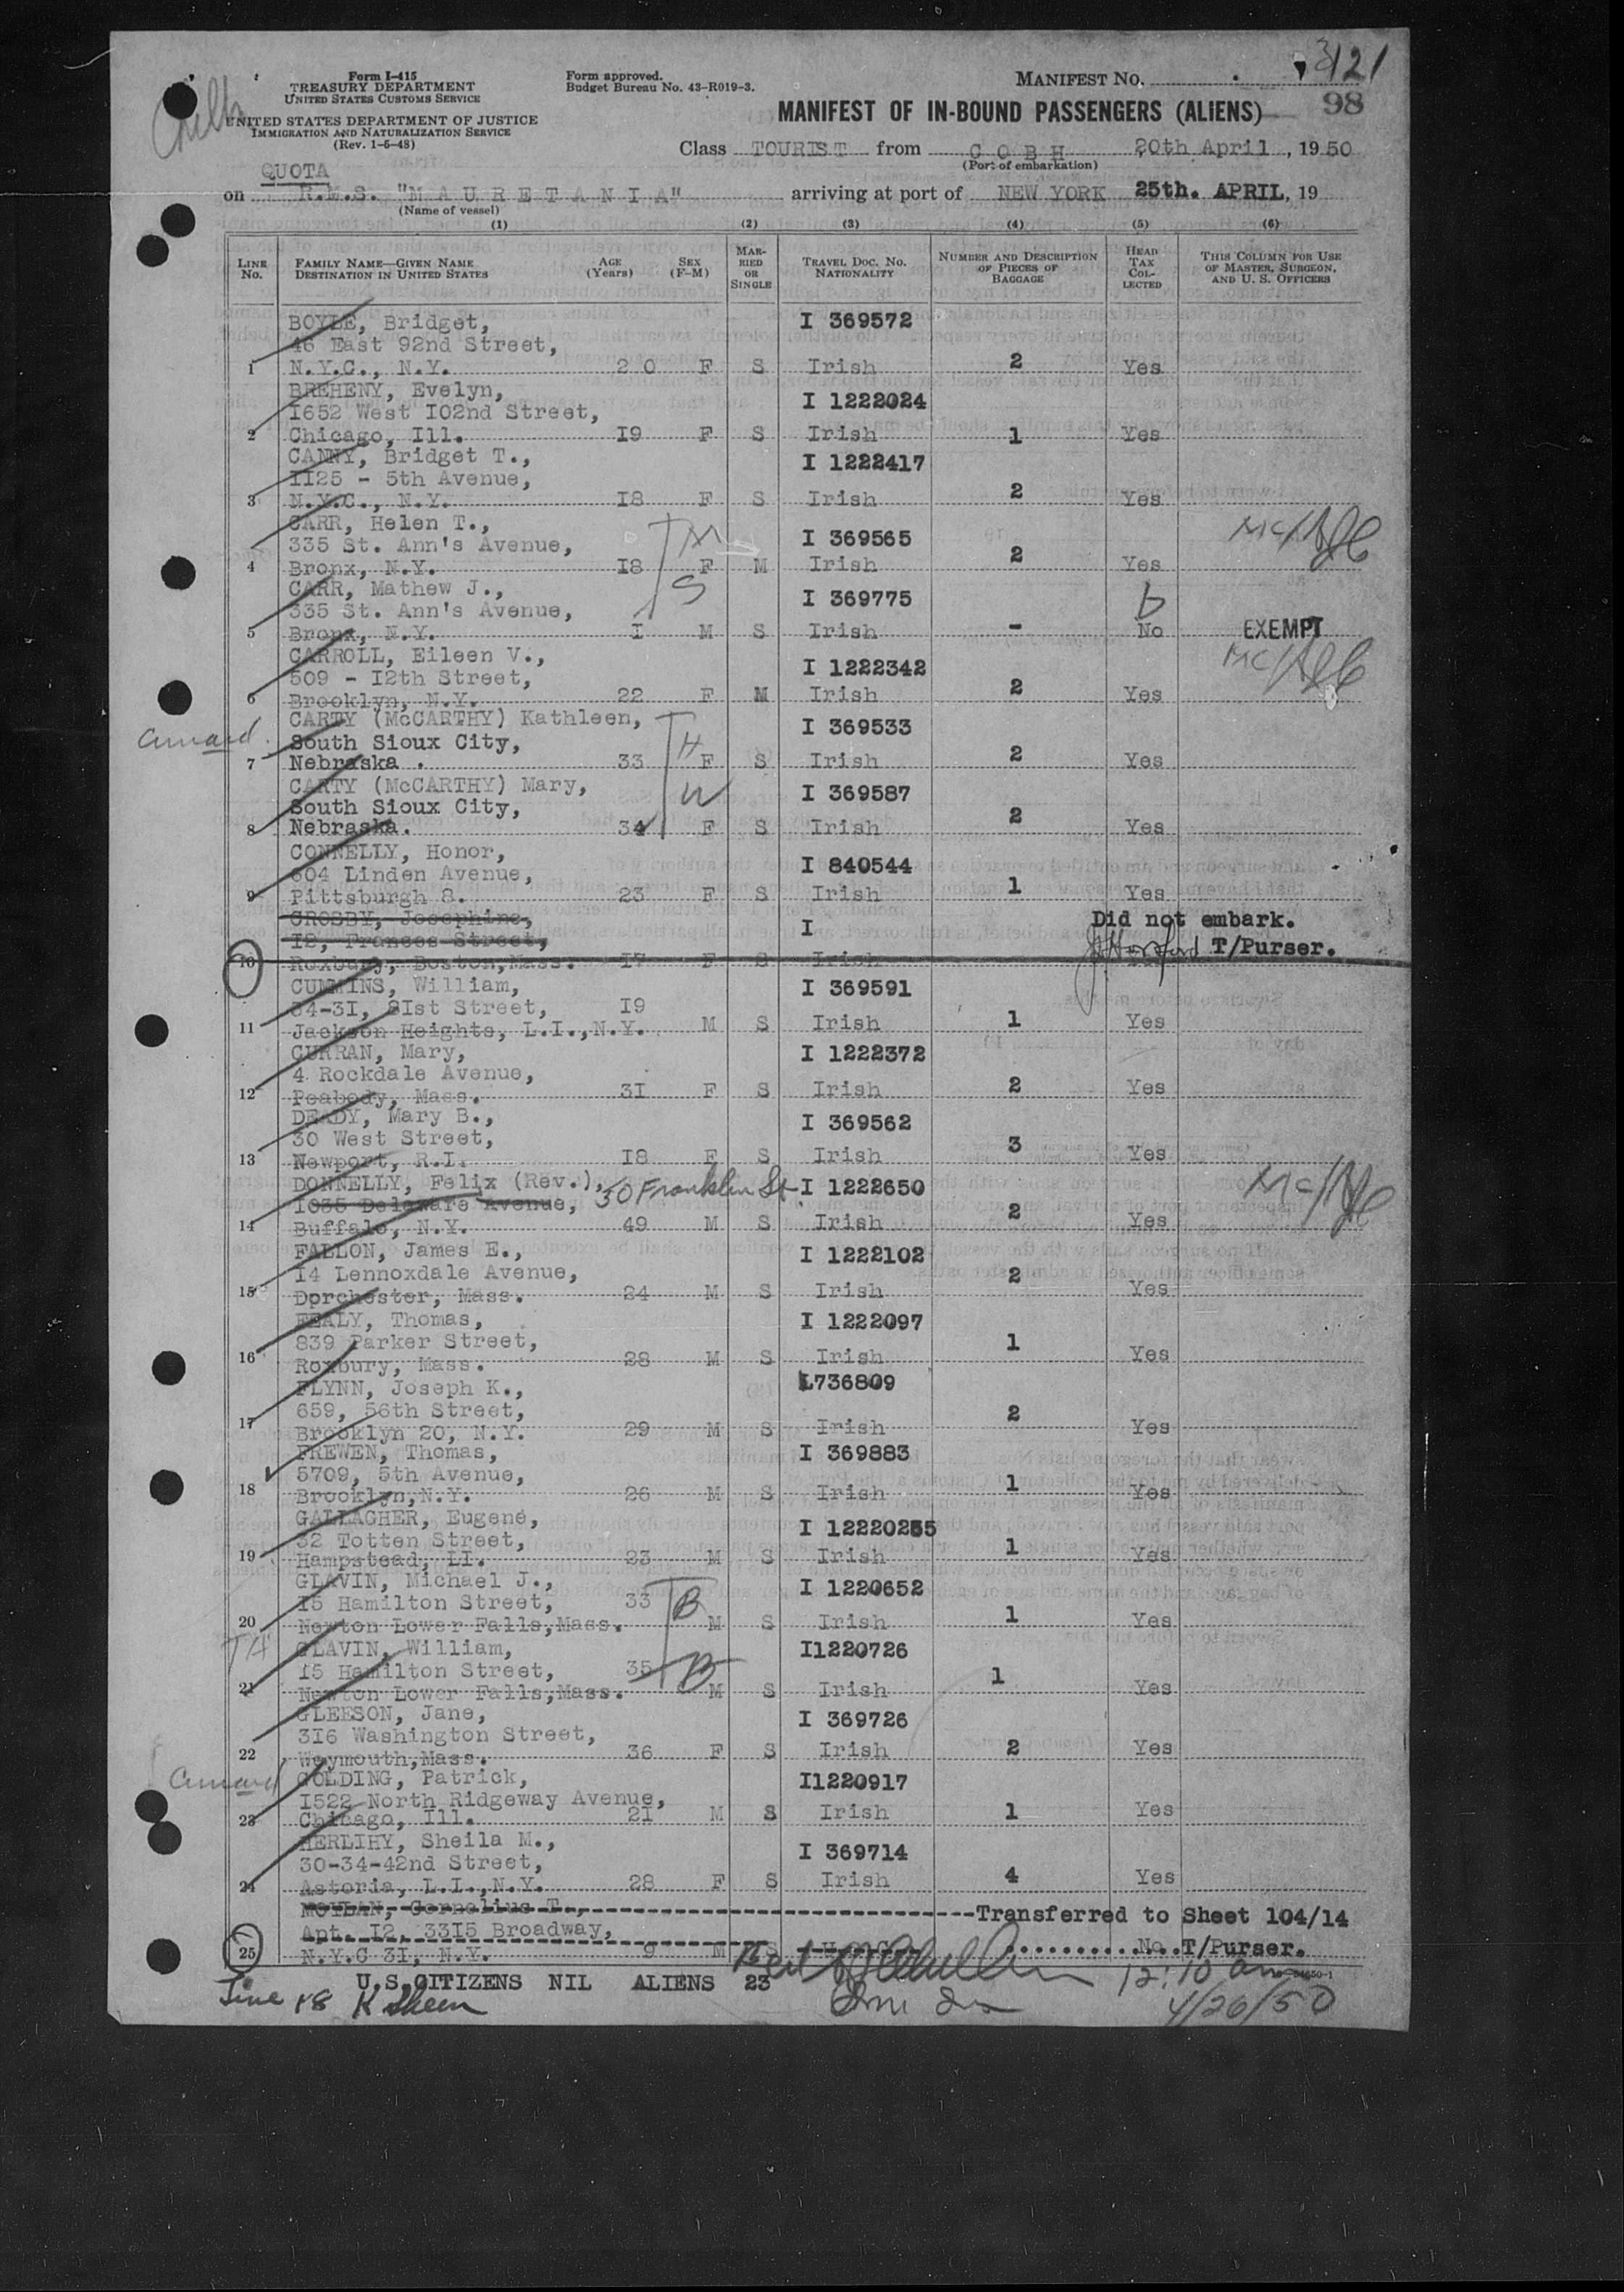 3121
Form I-415
TREASURY DEPARTMENT
UNITED STATES CUSTOMS SERVICE
Form approved.
Budget Bureau No. 43-R019-3.
MANIFEST NO.
98
UNITED STATES DEPARTMENT OF JUSTICE
IMMIGRATION AND NATURALIZATION SERVICE
(Rev. 1-5-48)
MANIFEST OF IN-BOUND PASSENGERS (ALIENS)
Class TOURIST from COBH 20th April, 1950
(Port of embarkation)
QUOTA
on R.M.S. "MAURETANIA" arriving at port of NEW YORK 25th. APRIL, 19
(Name of vessel)
(1) (2) (3) (4) (5) (6)
LINE No. FAMILY NAME—GIVEN NAME DESTINATION IN UNITED STATES AGE (Years) SEX (F-M) MARRIED OR SINGLE TRAVEL DOC. NO. NATIONALITY NUMBER AND DESCRIPTION OF PIECES OF BAGGAGE HEAD TAX COLLECTED THIS COLUMN FOR USE OF MASTER, SURGEON, AND U. S. OFFICERS
BOYLE, Bridget, I 369572
46 East 92nd Street,
1 N.Y.C., N.Y. 20 F S Irish 2 Yes
BREHENY, Evelyn, I 1222024
1652 West 102nd Street,
2 Chicago, Ill. 19 F S Irish 1 Yes
CANNY, Bridget T., I 1222417
1125 - 5th Avenue,
3 N.Y.C., N.Y. 18 F S Irish 2 Yes
CARR, Helen T., I 369565
335 St. Ann's Avenue,
4 Bronx, N.Y. 18 F M Irish 2 Yes
CARR, Mathew J., I 369775
335 St. Ann's Avenue,
5 Bronx, N.Y. I M S Irish - No EXEMPT
CARROLL, Eileen V., I 1222342
509 - 12th Street,
6 Brooklyn, N.Y. 22 F M Irish 2 Yes
CARTY (McCARTHY) Kathleen, I 369533
Cunard South Sioux City,
7 Nebraska . 33 F S Irish 2 Yes
CARTY (McCARTHY) Mary, I 369587
South Sioux City,
8 Nebraska. 34 F S Irish 2 Yes
CONNELLY, Honor, I 840544
604 Linden Avenue,
9 Pittsburgh 8. 23 F S Irish 1 Yes
CROSBY, Josephine, I Did not embark.
12, Frances Street, T/Purser.
10 Roxbury, Boston, Mass. 17 F S Irish
CUMMINS, William, I 369591
34-31, 81st Street, 19
11 Jackson Heights, L.I.,N.Y. M S Irish 1 Yes
CURRAN, Mary, I 1222372
4 Rockdale Avenue,
12 Peabody, Mass. 31 F S Irish 2 Yes
DEADY, Mary B., I 369562
30 West Street,
13 Newport, R.I. 18 F S Irish 3 Yes
DONNELLY, Felix (Rev.), 50 Franklin St. I 1222650
1035 Delaware Avenue,
14 Buffalo, N.Y. 49 M S Irish 2 Yes
FALLON, James E., I 1222102
14 Lennoxdale Avenue,
15 Dorchester, Mass. 24 M S Irish 2 Yes
FEALY, Thomas, I 1222097
839 Parker Street,
16 Roxbury, Mass. 28 M S Irish 1 Yes
FLYNN, Joseph K., L736809
659, 56th Street,
17 Brooklyn 20, N.Y. 29 M S Irish 2 Yes
FREWEN, Thomas, I 369883
5709, 5th Avenue,
18 Brooklyn,N.Y. 26 M S Irish 1 Yes
GALLAGHER, Eugene,
32 Totten Street,
19 Hampstead, LI. 23 M S Irish 1 Yes
GLAVIN, Michael J., I 1220652
15 Hamilton Street, 33 B
20 Newton Lower Falls,Mass. M S Irish 1 Yes
GLAVIN, William, I1220726
15 Hamilton Street, 35 B
21 Newton Lower Falls,Mass. M S Irish 1 Yes
GLEESON, Jane, I 369726
316 Washington Street,
22 Weymouth,Mass. 36 F S Irish 2 Yes
Cunard GOLDING, Patrick, I1220917
1522 North Ridgeway Avenue,
23 Chicago, Ill. 21 M S Irish 1 Yes
HERLIHY, Sheila M., I 369714
30-34-42nd Street,
24 Astoria, L.I.,N.Y. 28 F S Irish 4 Yes
MOYLAN, Cornelius T., Transferred to Sheet 104/14
Apt. 12, 3315 Broadway,
25 N.Y.C 31, N.Y. 9 M S No T/Purser.
U.S.CITIZENS NIL ALIENS 23 12:10 am
Line 18 4/26/50